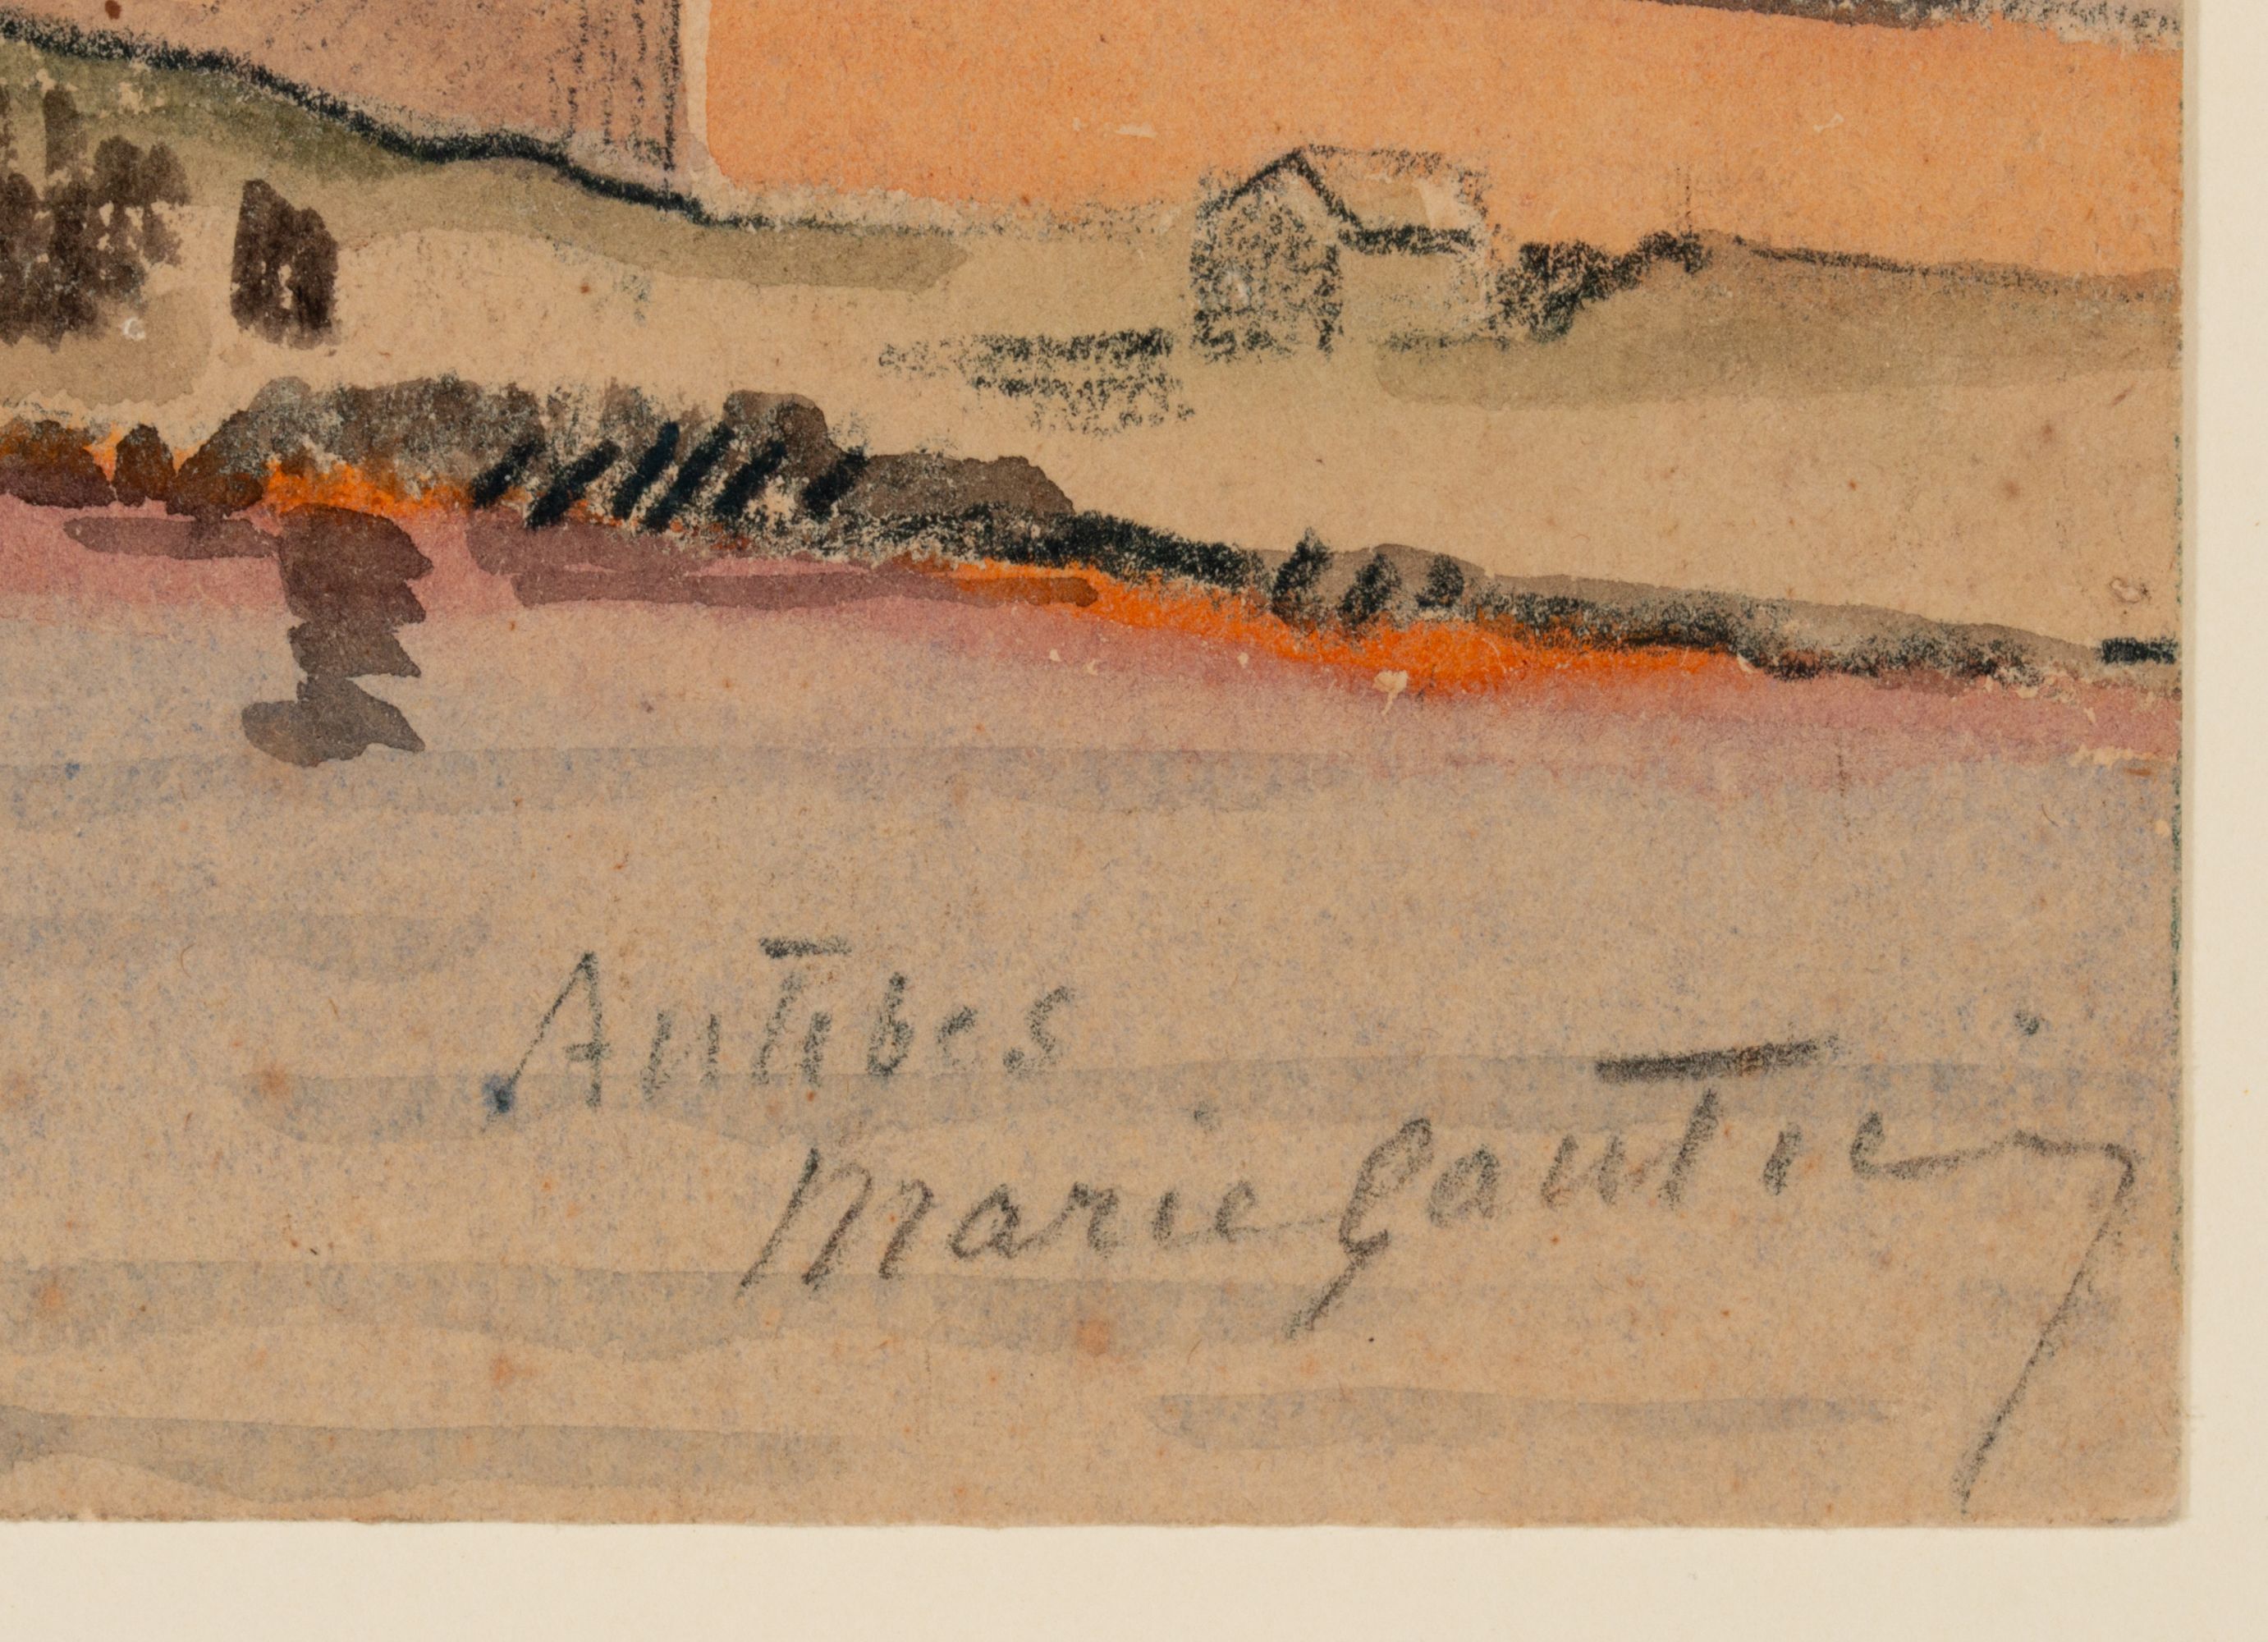 Antibes
Marie Gautier